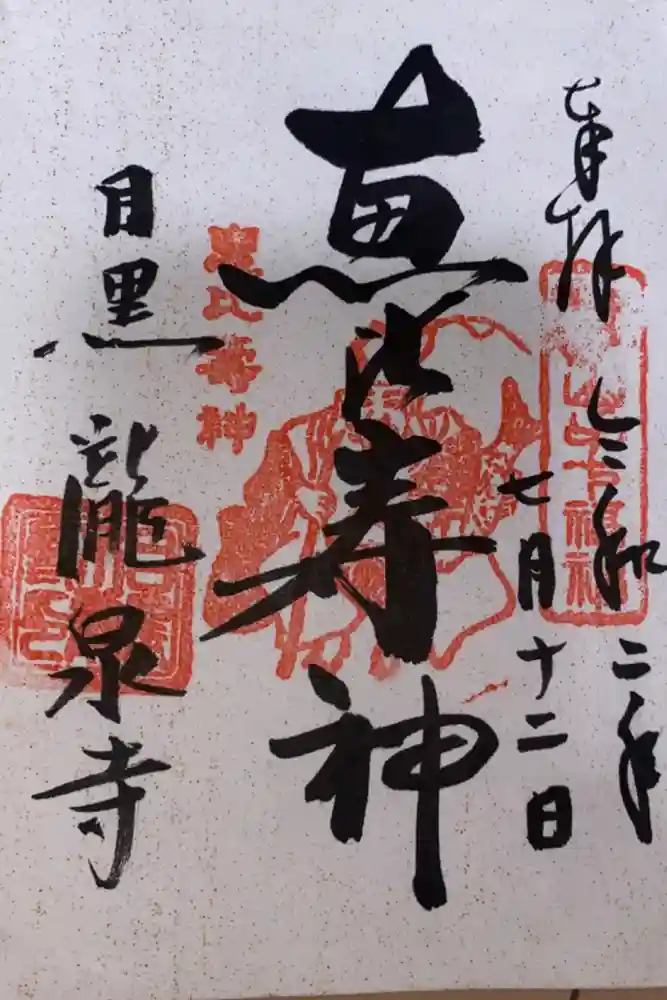 奉拝
令和二年
七月十二日
恵比寿神
恵比寿神
目黒 瀧泉寺